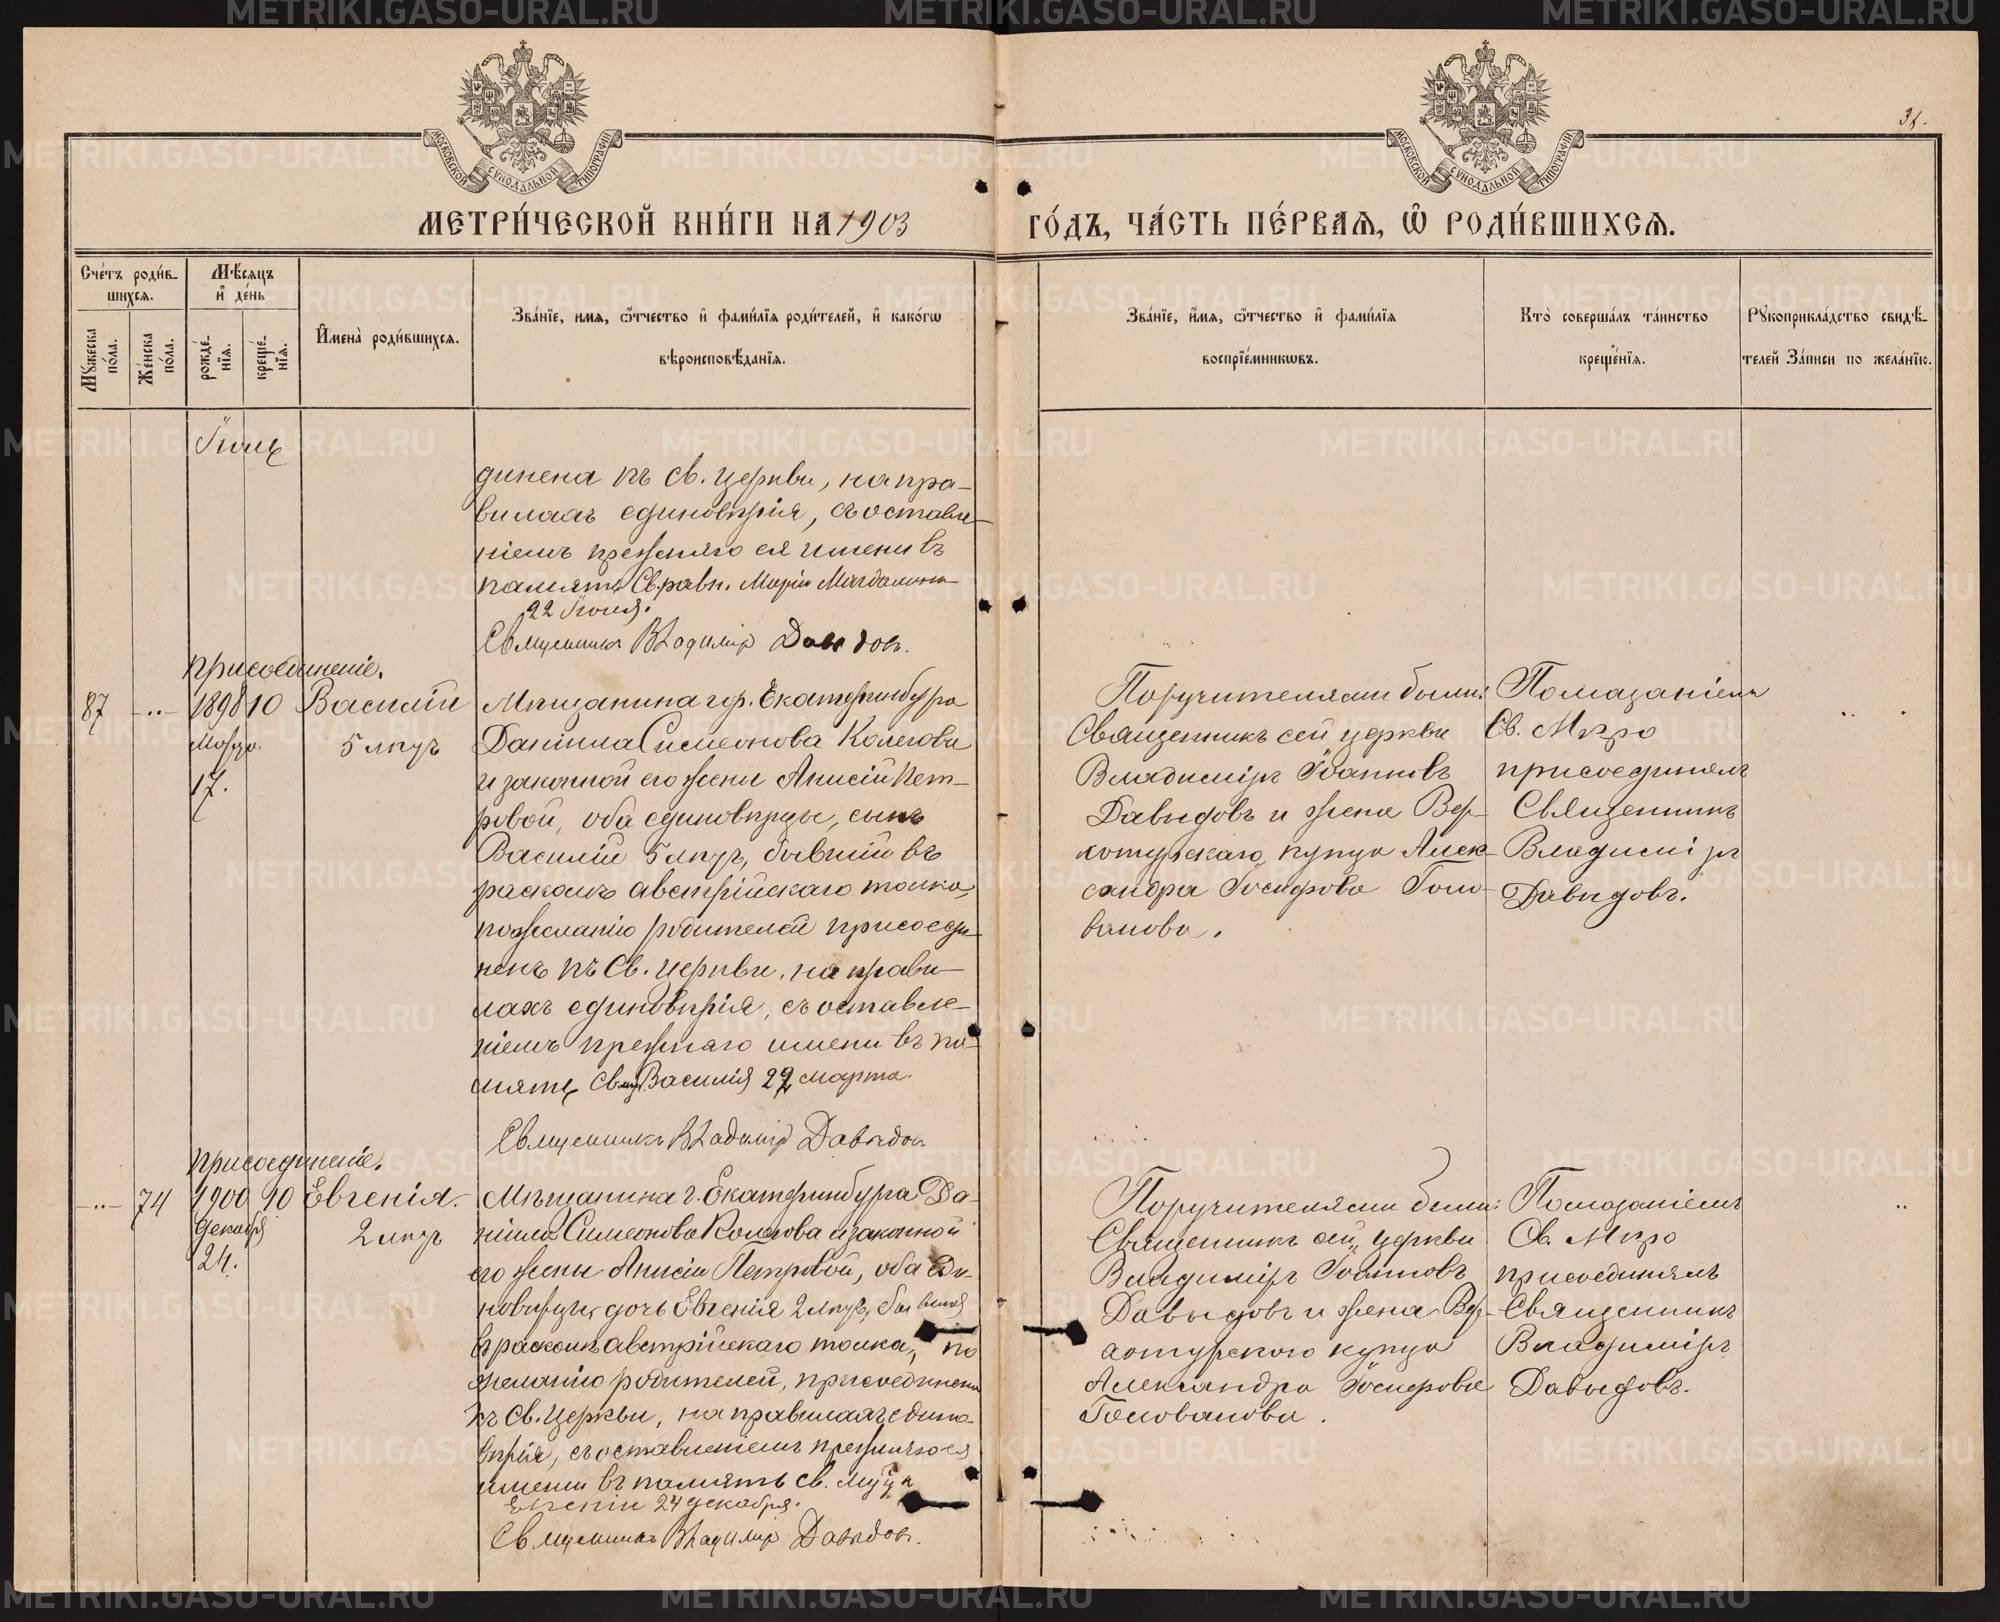 METRIKI.GASO-URAL.RU
МОСКОВСКОЙ СѴНОДАЛЬНОЙ ТИПОГРАФІИ
МОСКОВСКОЙ СѴНОДАЛЬНОЙ ТИПОГРАФІИ
МЕТРИ́ЧЕСКОЙ КНИ́ГИ НА 1903
ГО́ДЪ, ЧА́СТЬ ПЕ́РВАѦ, Ѿ РОДИ́ВШИХСѦ.
Сче́тъ роди́в-
шихсѧ.
Мꙋ́жеска по́ла.
Же́нска по́ла.
Мѣ́сѧцъ
и҆ де́нь
рожде́-
нїѧ.
креще́-
нїѧ.
И҆мена̀ роди́вшихсѧ.
Зва́нїе, имѧ, ѻ҆́тчество и҆ фами́лїѧ роди́телей, и҆ како́гѡ
вѣроисповѣ́данїѧ.
Зва́нїе, и҆мѧ, ѻ҆́тчество и҆ фами́лїѧ
воспрїе́мникѡвъ.
Кто̀ соверша́лъ та́инство
креще́нїѧ.
Рꙋкоприкла́дство свидѣ́-
телей За́писи по жела́нїю.
Іюль
динена къ Св. Церкви, на пра-
вилахъ единовѣрія, съ оставле-
ніемъ прежняго ея имени въ
память Св. равн. Маріи Магдалины
22 Іюля.
Священникъ Владиміръ Давыдовъ.
Присоединеніе.
87 -..- 1898 10 Василій
Марта 5 лѣтъ
17.
Мѣщанина гор. Екатеринбурга
Даніила Симеонова Колегова
и законной его жены Анисіи Пет-
ровой, оба единовѣрцы, сынъ
Василій 5 лѣтъ, бывшій въ
расколѣ австрійскаго толка,
по желанію родителей присоеди-
ненъ къ Св. Церкви, на прави-
лахъ единовѣрія, съ оставле-
ніемъ прежняго имени въ па-
мять Свмуч. Василія 22 марта.
Священникъ Владиміръ Давыдовъ
Поручителями были:
Священникъ сей церкви
Владиміръ Іоанновъ
Давыдовъ и жена Вер-
хотурскаго купца Алек-
сандра Іосифова Голо-
ванова.
Помазаніемъ
Св. Мѵро
присоединялъ
Священникъ
Владиміръ
Давыдовъ.
Присоединеніе.
-..- 74 1900 10 Евгенія.
Декабря 2 лѣтъ
24.
Мѣщанина г. Екатеринбурга Да-
ніила Симеонова Колегова и законной
его жены Анисіи Петровой, оба еди-
новѣрцы, дочь Евгенія 2 лѣтъ, бывшая
въ расколѣ австрійскаго толка, по
желанію родителей, присоединена
къ Св. Церкви, на правилахъ едино-
вѣрія, съ оставленіемъ прежняго ея
имени въ память св. муч.
Евгеніи 24 декабря.
Священникъ Владиміръ Давыдовъ.
Поручителями были:
Священникъ сей церкви
Владиміръ Іоанновъ
Давыдовъ и жена Вер-
хотурскаго купца
Александра Іосифова
Голованова.
Помазаніемъ
Св. Мѵро
присоединялъ
Священникъ
Владиміръ
Давыдовъ.